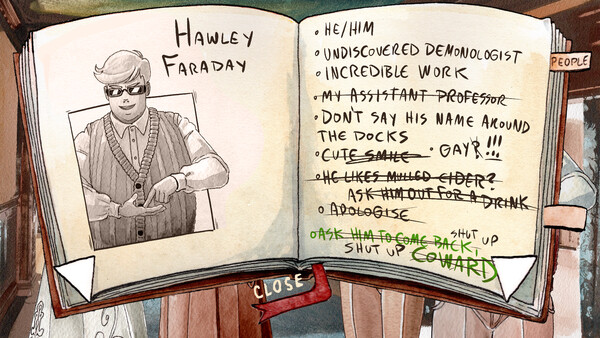 HAWLEY
FARADAY
• HE/HIM
• UNDISCOVERED DEMONOLOGIST
• INCREDIBLE WORK
• MY ASSISTANT PROFESSOR
• DON'T SAY HIS NAME AROUND
THE DOCKS
• CUTE SMILE • GAY?!!!
• HE LIKES MULLED CIDER?
ASK HIM OUT FOR A DRINK
• APOLOGISE
• ASK HIM TO COME BACK? SHUT UP
SHUT UP COWARD
PEOPLE
CLOSE